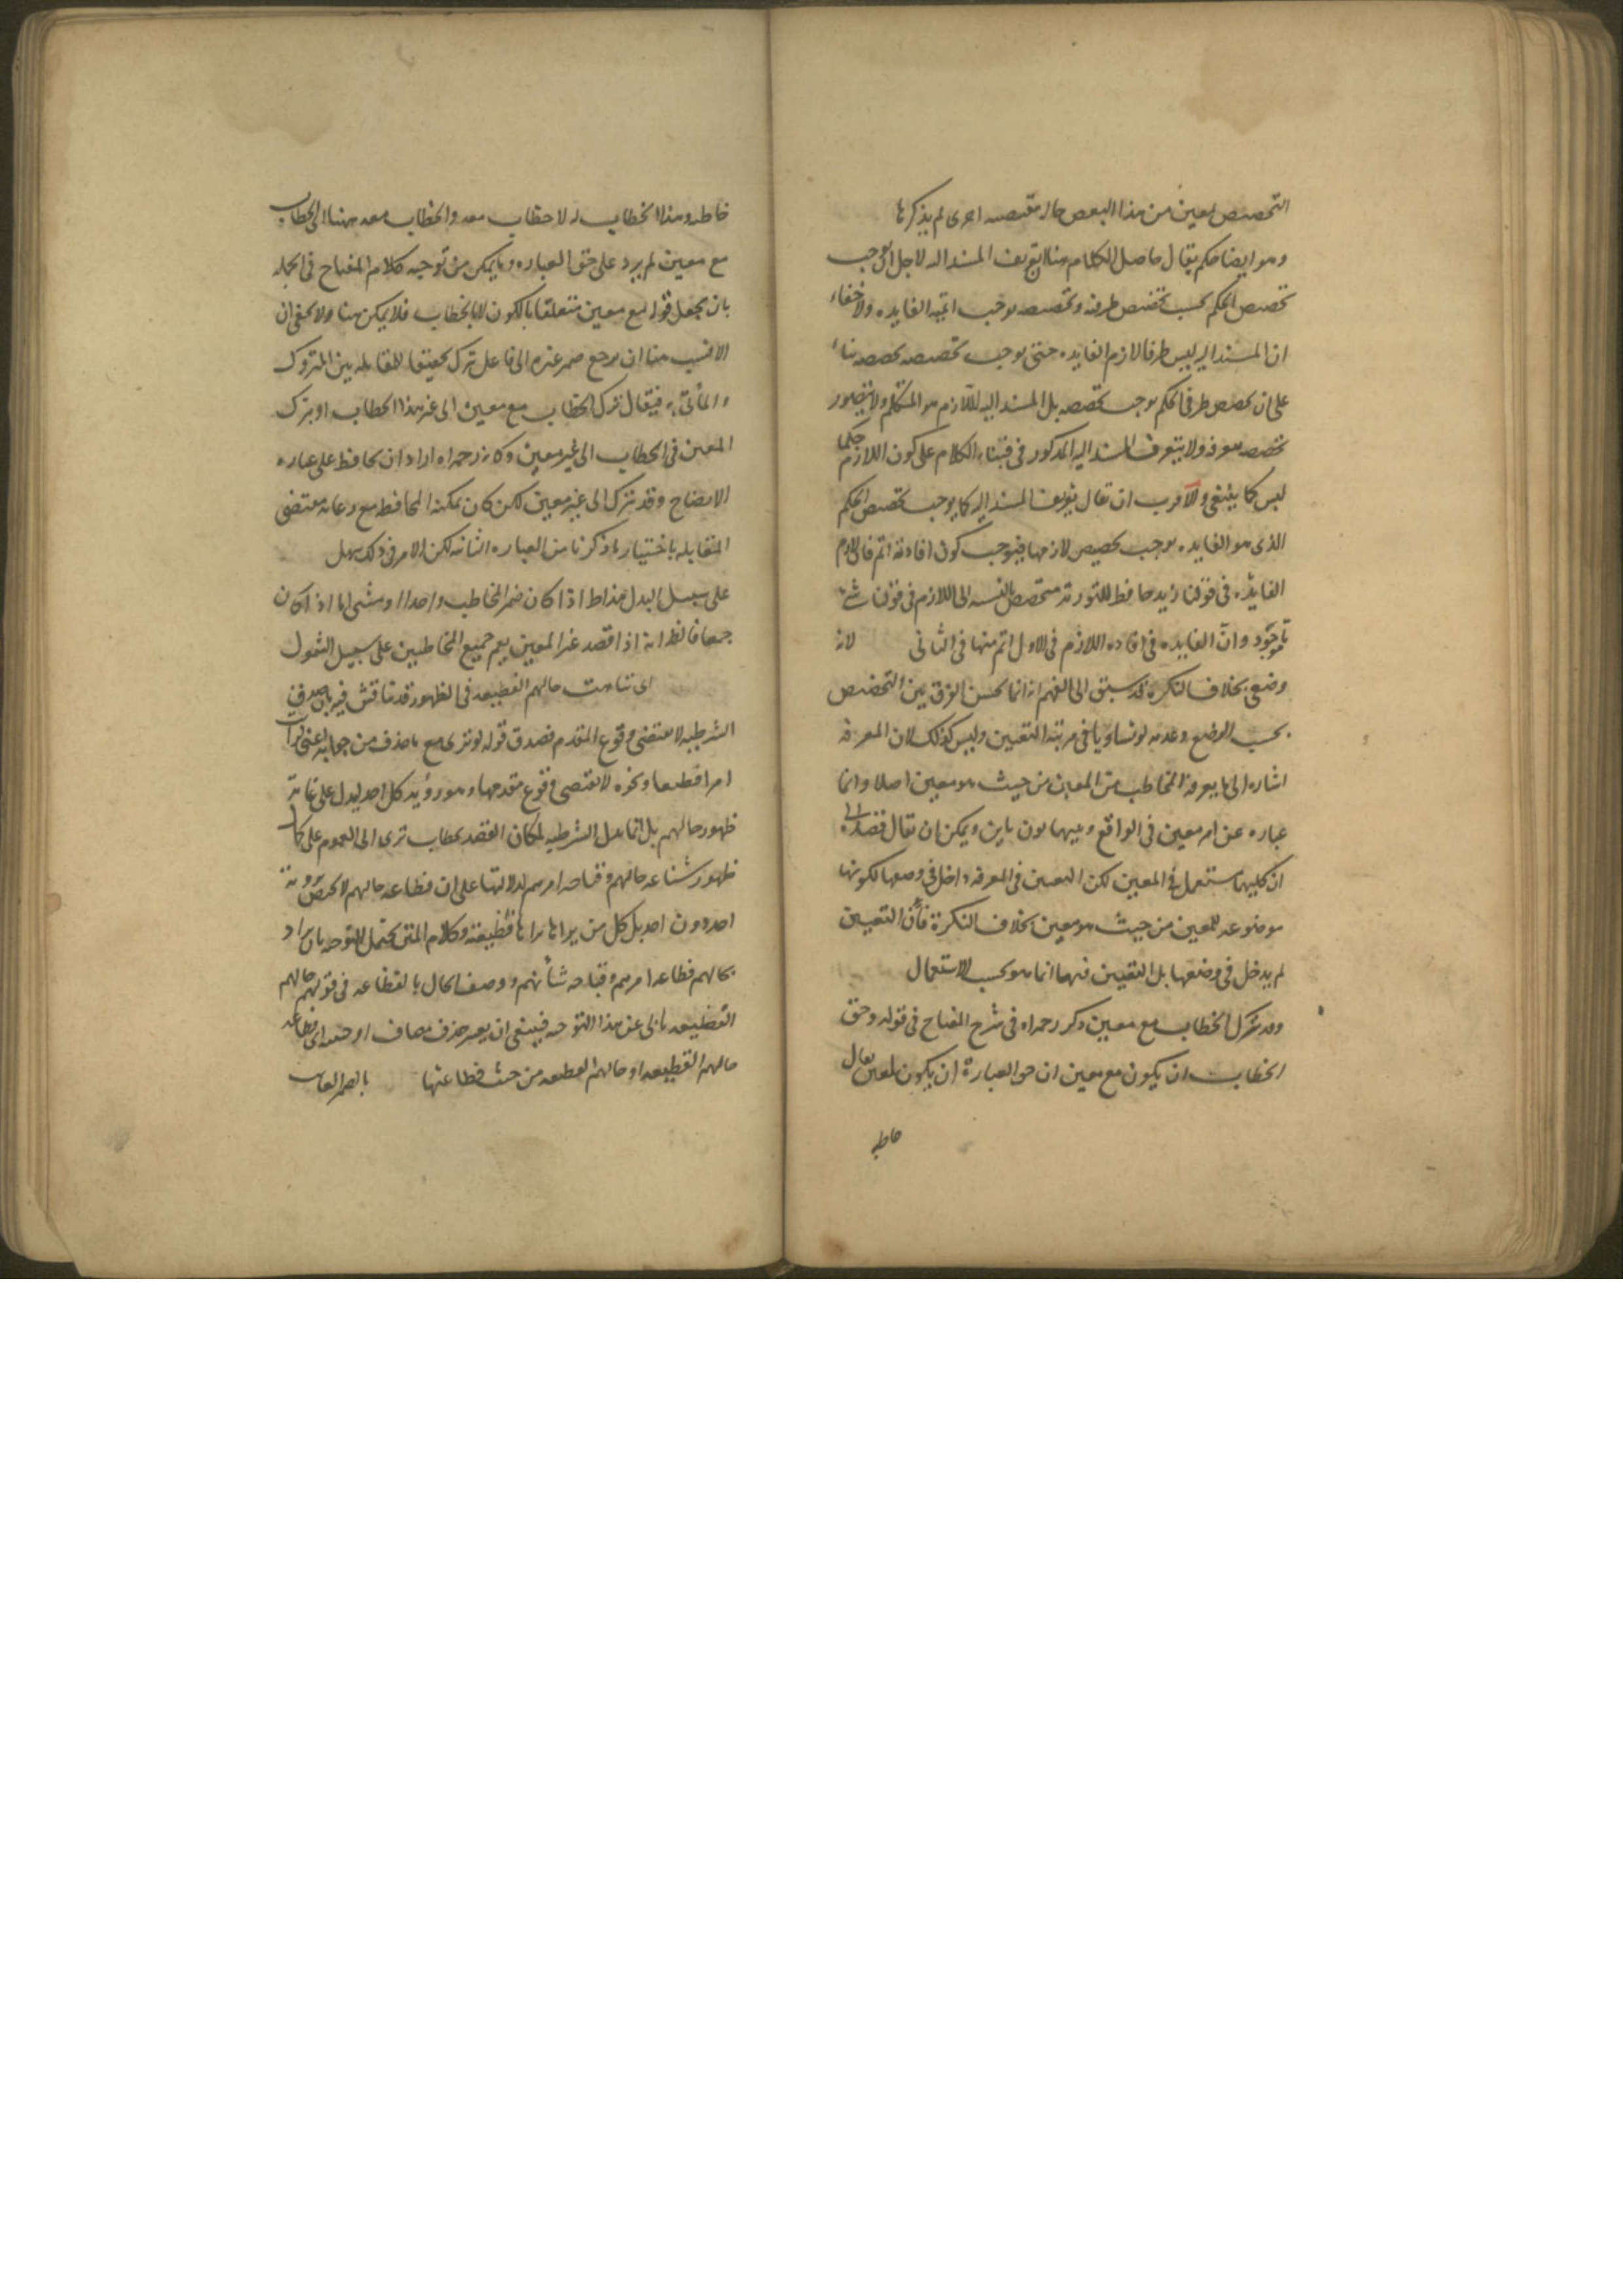 التخصيص لمعين من هذا البعض حاله مقتضيه اخرى لم يذكرها
وهو ايضا حكم يقال حاصل الكلام هنا لا تعريف المسند اليه لاجل انه يوجب
تخصيص الحكم بحسب تخصيص طرفه وتخصيصه يوجب اتميه الفايده ولاخفاء
ان المسند اليه ليس طرفا لازم الفايده حتى يوجب تخصيصه تخصيصه بناء
على ان تخصيص طرفى الحكم يوجب تخصيصه بل المسند اليه للازم هو المتكلم ولا يتصور
تخصيصه معرفه ولا بتعريف المسند اليه المذكور فى فبناء الكلام على كون اللازم حكما
ليس كما ينبغى والاقرب ان يقال تعريف المسند اليه كما يوجب تخصيص الحكم
الذى هو الفايده يوجب تخصيص لازمها فيوجب كون افادته اتم فان لازم
الفايده فى قولنا زيد حافظ للتوريه متخصص بالنسبه الى اللازم فى قولنا شئ
ما موجود وان الفايده فى افاده اللازم فى الاول اتم منها فى الثانى لانه
وضعى بخلاف النكره قد سبق الى الفهم انه انما يحسن الفرق بين التخصيص
بحسب الوضع وعدمه لو تساويا فى مرتبة التعيين وليس كذلك لان المعرفه
اشاره الى ما يعرفه المخاطب من المعين من حيث هو معين اصلا وانما
عباره عن امر معين فى الواقع وبينهما بون باين ويمكن ان يقال قصده الى
ان كليهما مستعمل فى المعين لكن التعيين فى المعرفه داخل فى وضعها لكونها
موضوعه للمعين من حيث هو معين بخلاف النكرة فان التعيين
لم يدخل فى وضعها بل التعيين فيها انما هو بحسب الاستعمال
وقد يترك الخطاب مع معين ذكر رحمه الله فى شرح المفتاح فى قوله وحق
الخطاب ان يكون مع معين ان حق العبارة ان يكون لمعين يقال
خاطبه
خاطبه وهذا الخطاب له لا خطاب معه والخطاب معه ههنا الى الخطاب
مع معين لم يرد على حق العباره وما يمكن من توجيه كلام المفتاح فى الجمله
بان يجعل قوله مع معين متعلقا بالكون لا بالخطاب فلا يمكن هنا ولا يخفى ان
الانسب هنا ان يرجع ضمير غيره الى فاعل ترك تحقيقا للمقابله بين المتروك
والمأتى به فيقال ترك الخطاب مع معين الى غير هذا الخطاب او يترك
المعين فى الخطاب الى غير معين وكانه رحمه الله اراد ان يحافظ على عباره
الايضاح وقد يترك الى غير معين لكن كان يمكنه المحافظه مع رعايه مقتضى
المقابله باختيار ما ذكرنا من العباره الثانيه لكن الامر فى ذلك سهل
على سبيل البدل هذا ظ اذا كان ضمير المخاطب واحدا او مثنى اما اذا كان
جمعا فالظ انه اذا قصد غير المعين يعم جميع المخاطبين على سبيل الشمول
اى تناهت حالهم الفظيعه فى الظهور قد يناقش فيه بان صدق
الشرطيه لا يقتضى وقوع المقدم فصدق قوله لو ترى مع ما حذف من جوابه اعنى لرايت
امرا فظيعا ونحوه لا يقتضى وقوع مقدمها وهو رؤية كل احد ليدل على غاية
ظهور حالهم بل انما يدل الشرطيه لمكان القصد بخطاب ترى الى العموم على كمال
ظهور شناعه حالهم وقباحه امرهم لدلالتها على ان فظاعه حالهم لا يختص برؤيته
احد دون احد بل كل من يراها يراها فظيعة وكلام المتن يحتمل التوجيه بان يراد
بحالهم فظاعه امرهم وقباحه شأنهم ووصف الحال بالفظاعه فى قولهم حالهم
الفظيعه يأبى عن هذا التوجيه فينبغى ان يعتبر حذف مضاف او صفه اى فظاعه
حالهم الفظيعه او حالهم الفظيعه من حيث فظاعتها